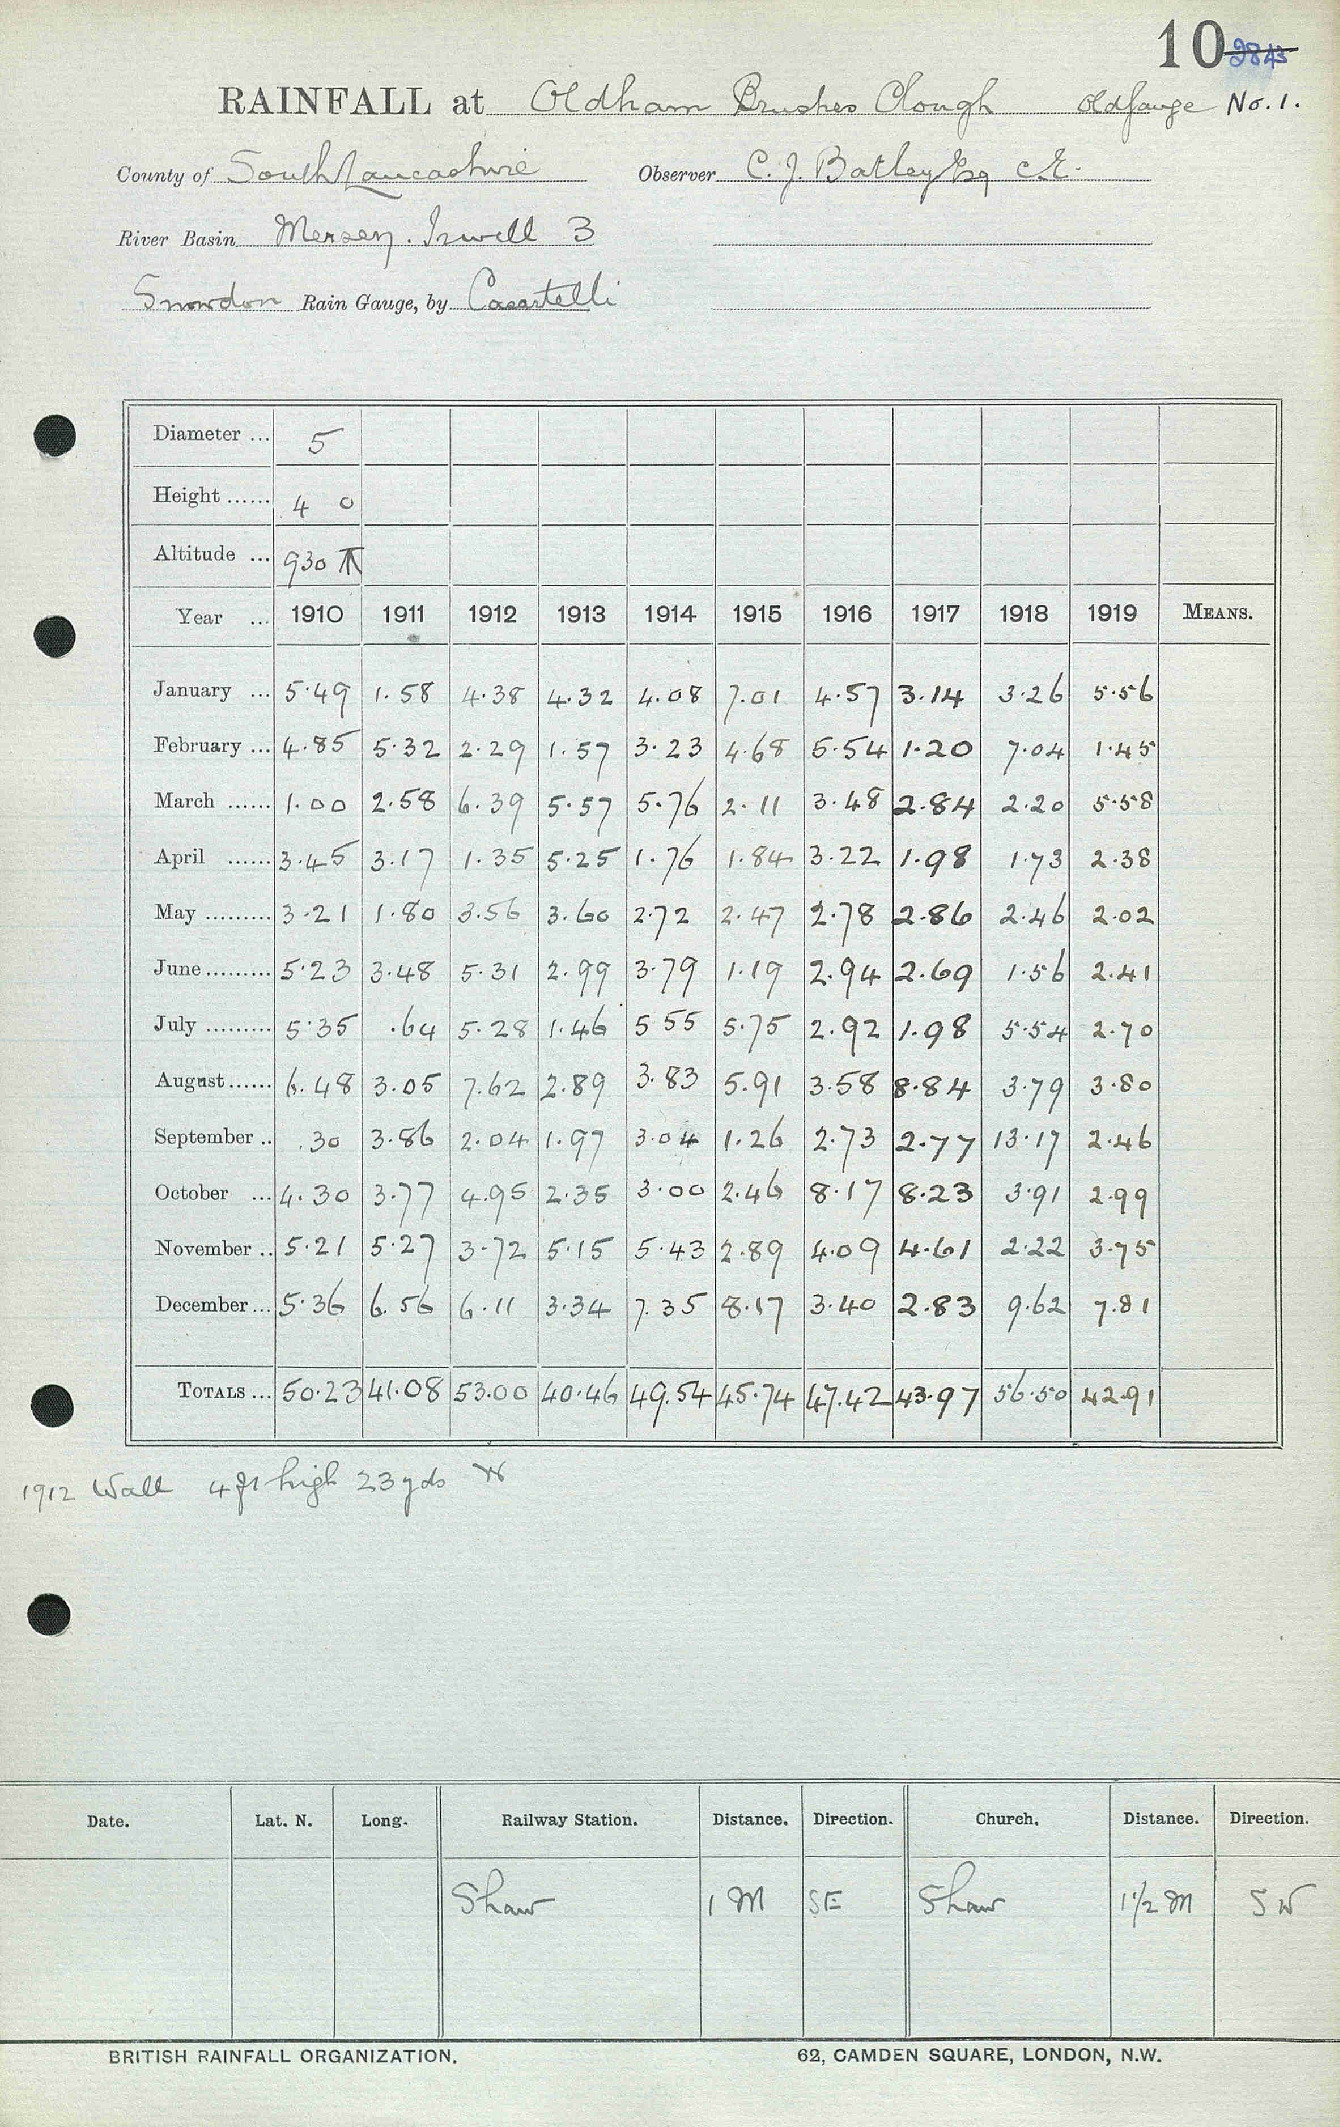 10 2843
RAINFALL at Oldham Brushes Clough Old Gauge No. 1.
County of South Lancashire Observer C. J. Batley Esq C.E.
River Basin Mersey. Irwell 3
Snowdon Rain Gauge, by Casartelli
Diameter ... 5
Height ...... 4 0
Altitude ... 930
Year ... 1910 1911 1912 1913 1914 1915 1916 1917 1918 1919 MEANS.
January ... 5.49 1.58 4.38 4.32 4.08 7.01 4.57 3.14 3.26 5.56
February ... 4.85 5.32 2.29 1.57 3.23 4.68 5.54 1.20 7.04 1.45
March ...... 1.00 2.58 6.39 5.57 5.76 2.11 3.48 2.84 2.20 5.58
April ...... 3.45 3.17 1.35 5.25 1.76 1.84 3.22 1.98 1.73 2.38
May ......... 3.21 1.80 3.56 3.60 2.72 2.47 2.78 2.86 2.46 2.02
June ......... 5.23 3.48 5.31 2.99 3.79 1.19 2.94 2.69 1.56 2.41
July ......... 5.35 .64 5.28 1.46 5 55 5.75 2.92 1.98 5.54 2.70
August ...... 6.48 3.05 7.62 2.89 3.83 5.91 3.58 8.84 3.79 3.80
September .. .30 3.86 2.04 1.97 3.04 1.26 2.73 2.77 13.17 2.46
October ... 4.30 3.77 4.95 2.35 3.00 2.46 8.17 8.23 3.91 2.99
November .. 5.21 5.27 3.72 5.15 5.43 2.89 4.09 4.61 2.22 3.75
December ... 5.36 6.56 6.11 3.34 7.35 8.17 3.40 2.83 9.62 7.81
TOTALS ... 50.23 41.08 53.00 40.46 49.54 45.74 47.42 43.97 56.50 42.91
1912 Wall 4 ft high 23 yds W
Date. Lat. N. Long. Railway Station. Distance. Direction. Church. Distance. Direction.
Shaw 1 M SE Shaw 1 1/2 M SW
BRITISH RAINFALL ORGANIZATION. 62, CAMDEN SQUARE, LONDON, N.W.